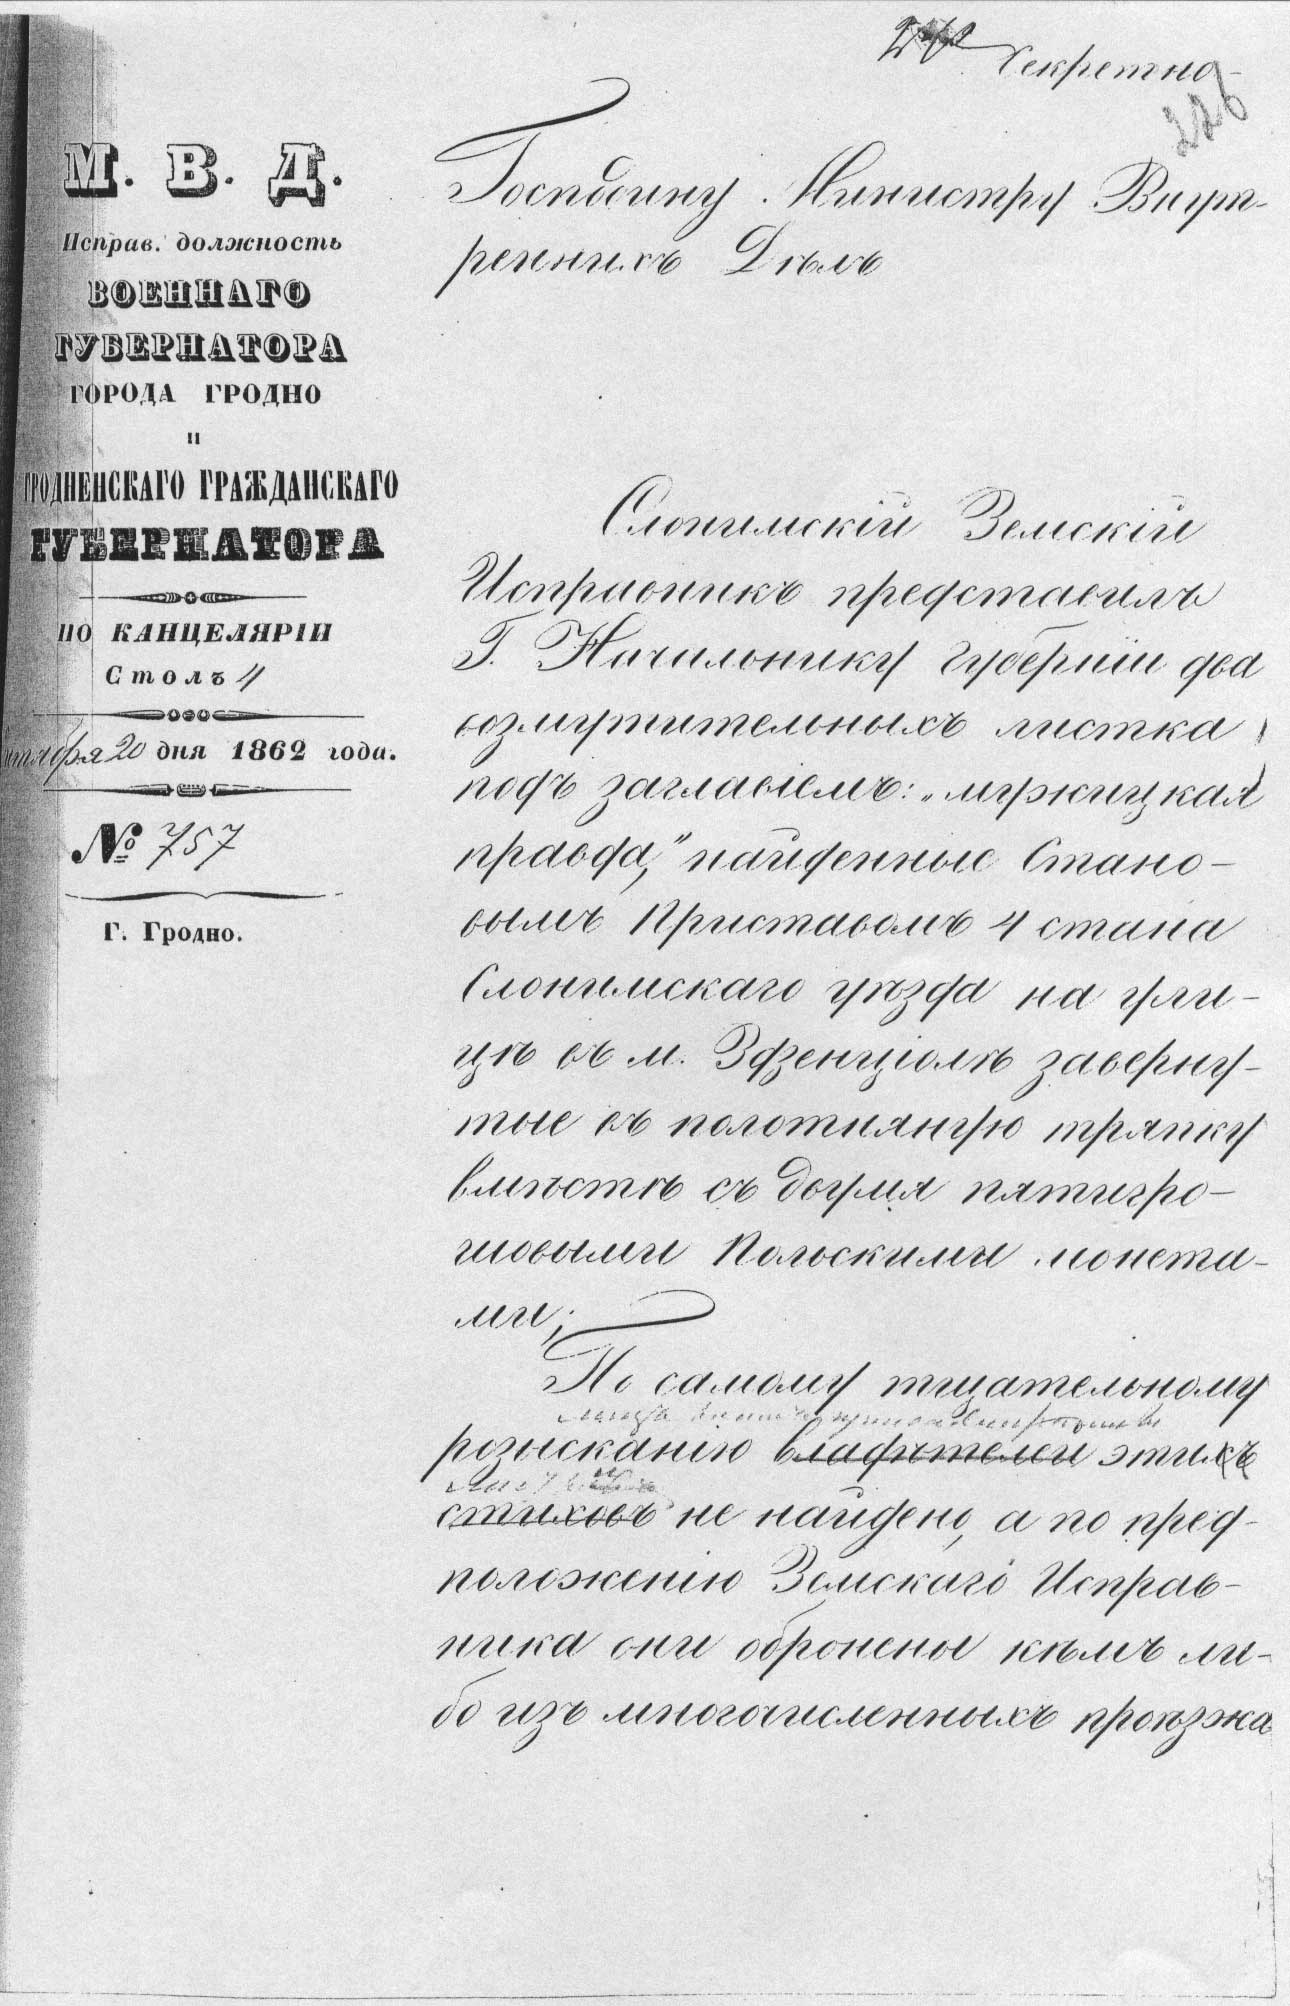 Секретно
226
М. В. Д.
Исправ. должность
ВОЕННАГО
ГУБЕРНАТОРА
ГОРОДА ГРОДНО
И
ГРОДНЕНСКАГО ГРАЖДАНСКАГО
ГУБЕРНАТОРА
ПО КАНЦЕЛЯРІИ
Столъ 4
20 дня 1862 года.
№ 757
Г. Гродно.
Господину Министру Внут-
реннихъ Дѣлъ
Слонимскій Земскій
Исправникъ представилъ
Г. Начальнику Губерніи два
возмутительныхъ листка
подъ заглавіемъ: „мужицкая
правда,” найденные Стано-
вымъ Приставомъ 4 стана
Слонимскаго уѣзда на ули-
цѣ въ м. Здзенціолѣ заверну-
тые въ полотняную тряпку
вмѣстѣ съ двумя пятигро-
шовыми Польскими монета-
ми;
По самому тщательному
розысканію владѣтелей этихъ
стиховъ не найдено, а по пред-
положенію Земскаго Исправ-
ника они обронены кѣмъ ли-
бо изъ многочисленныхъ проѣзжа